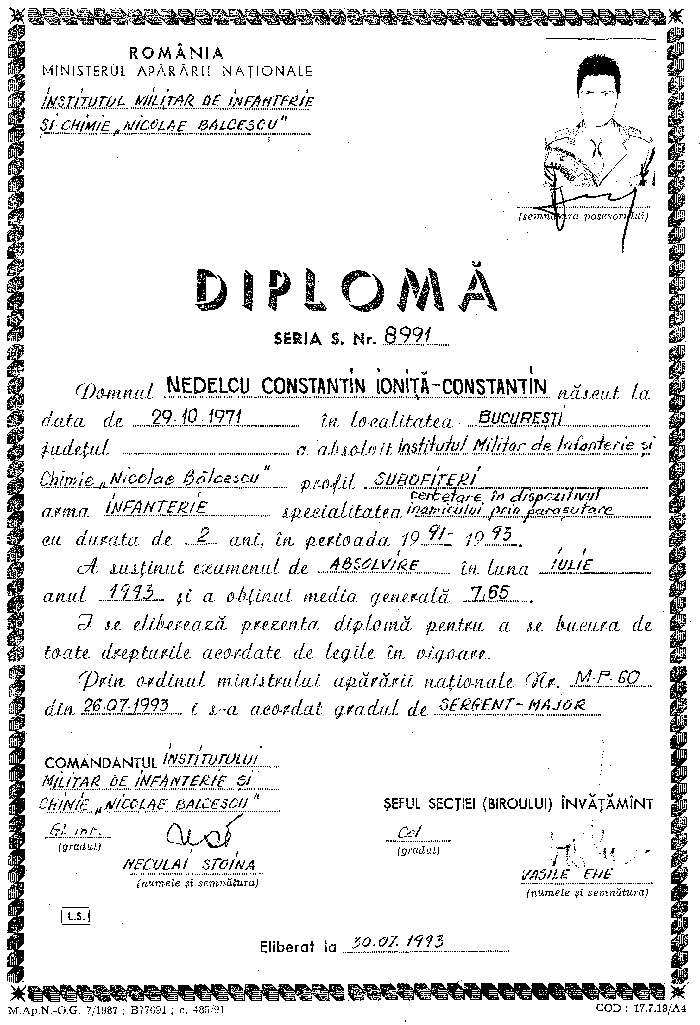 ROMÂNIA
MINISTERUL APĂRĂRII NAȚIONALE
INSTITUTUL MILITAR DE INFANTERIE
ȘI CHIMIE „NICOLAE BALCESCU"
(semnătura posesorului)
DIPLOMĂ
SERIA S. Nr. 8991
Domnul NEDELCU CONSTANTIN IONIȚĂ-CONSTANTIN născut la
data de 29.10.1971 în localitatea BUCUREȘTI
județul a absolvit Institutul Militar de Infanterie și
Chimie „Nicolae Bălcescu" profil SUBOFIȚERI
arma INFANTERIE specialitatea cercetare în dispozitivul inamicului prin parașutare
cu durata de 2 ani, în perioada 1991-1993.
A susținut examenul de ABSOLVIRE în luna IULIE
anul 1993 și a obținut media generală 7,65.
I se eliberează prezenta diplomă pentru a se bucura de
toate drepturile acordate de legile în vigoare.
Prin ordinul ministrului apărării naționale Nr. M.P. 60
din 26.07.1993 i s-a acordat gradul de SERGENT-MAJOR
COMANDANTUL INSTITUTULUI
MILITAR DE INFANTERIE ȘI
CHIMIE „NICOLAE BALCESCU"
Gl. mr.
(gradul)
NECULAI STOINA
(numele și semnătura)
ȘEFUL SECȚIEI (BIROULUI) ÎNVĂȚĂMÎNT
Col
(gradul)
VASILE ENE
(numele și semnătura)
L.S.
Eliberat la 30.07.1993
M.Ap.N.-O.G. 7/1987 ; B17691 ; c. 485/91
COD : 17.7.18/A4